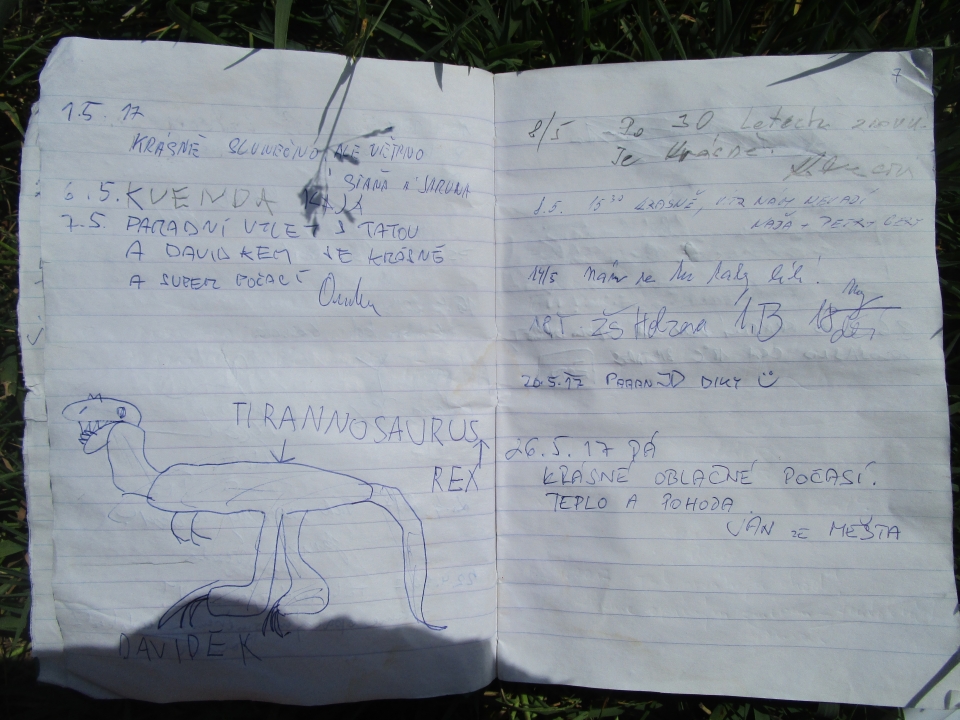 1.5. 17
KRÁSNĚ SLUNEČNO ALE VĚTRNO
6.5. KVENDA KÁJA
7.5. PARADNÍ VÝLET S TATOU
A DAVIDKEM JE KRÁSNĚ
A SUPER POČASÍ
TIRANNOSAURUS
REX
DAVIDEK
7
8/5 Po 30 Letech znovu
Je krásně.
8.5. 15 30 KRÁSNĚ, VÍTR NÁM NEVADÍ
NAĎA + PETR +
14/5 nám se tu taky líbí!
18.5. ZŠ Holzova 1.B 18 dětí
20.5.17 DIKY
26.5.17 PÁ
KRÁSNÉ OBLAČNÉ POČASÍ.
TEPLO A POHODA.
JAN ZE MĚSTA